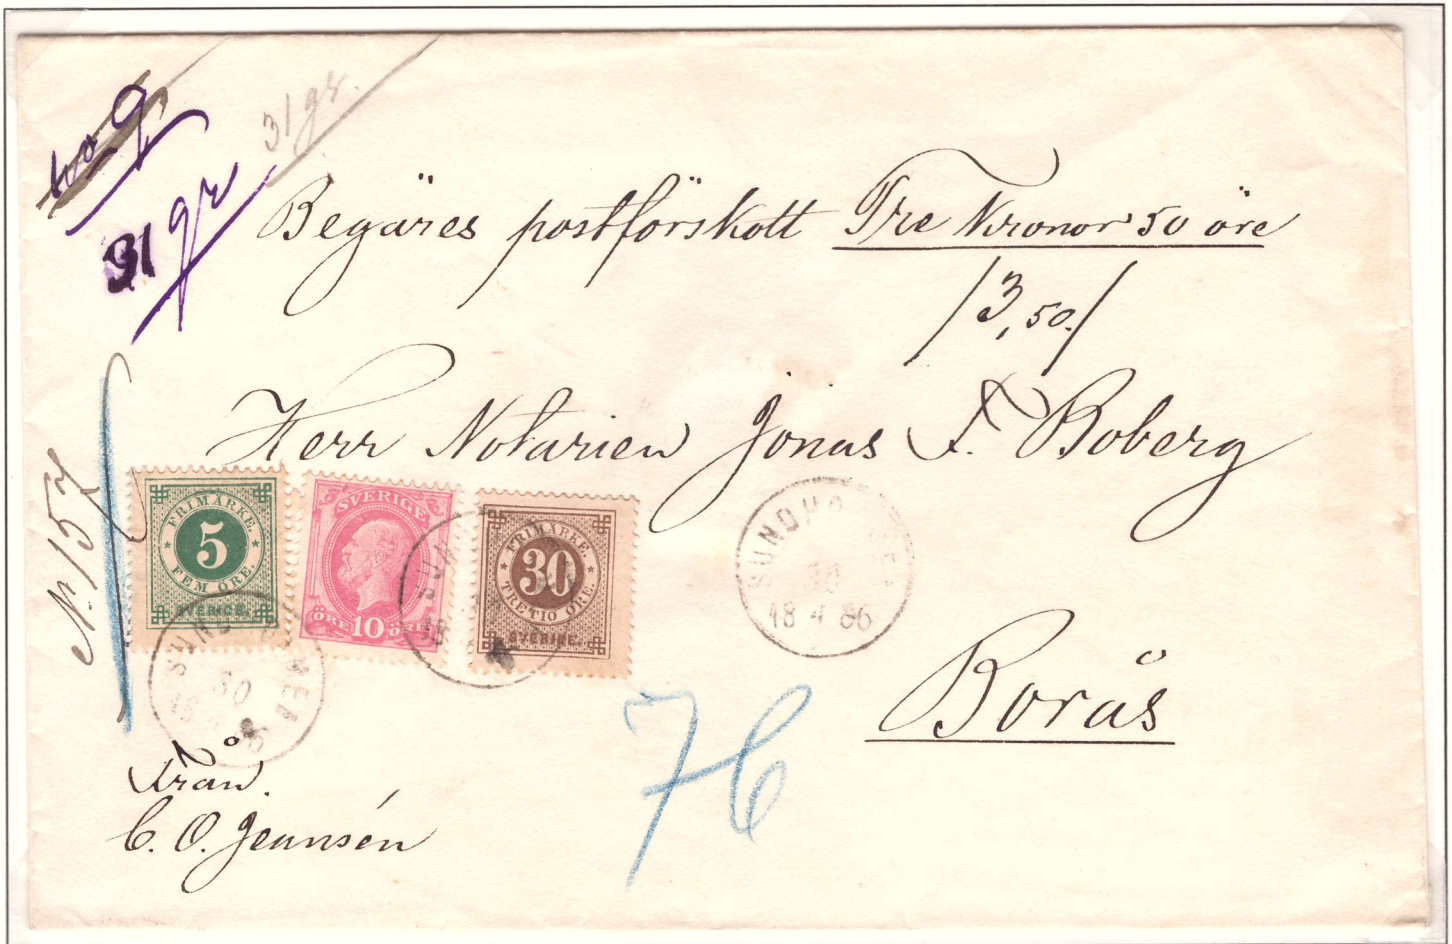 31 gr.
31 gr
Begäres postförskott Tre Kronor 50 öre
/3,50./
Herr Notarien Jonas F. Boberg
N: 157
FRIMÄRKE.
5
FEM ÖRE.
SVERIGE.
SVERIGE
ÖRE 10 ÖRE
FRIMÄRKE.
30
TRETIO ÖRE.
SVERIGE.
30
18 4 86
30
Borås
76
från.
C. O. Jeansén